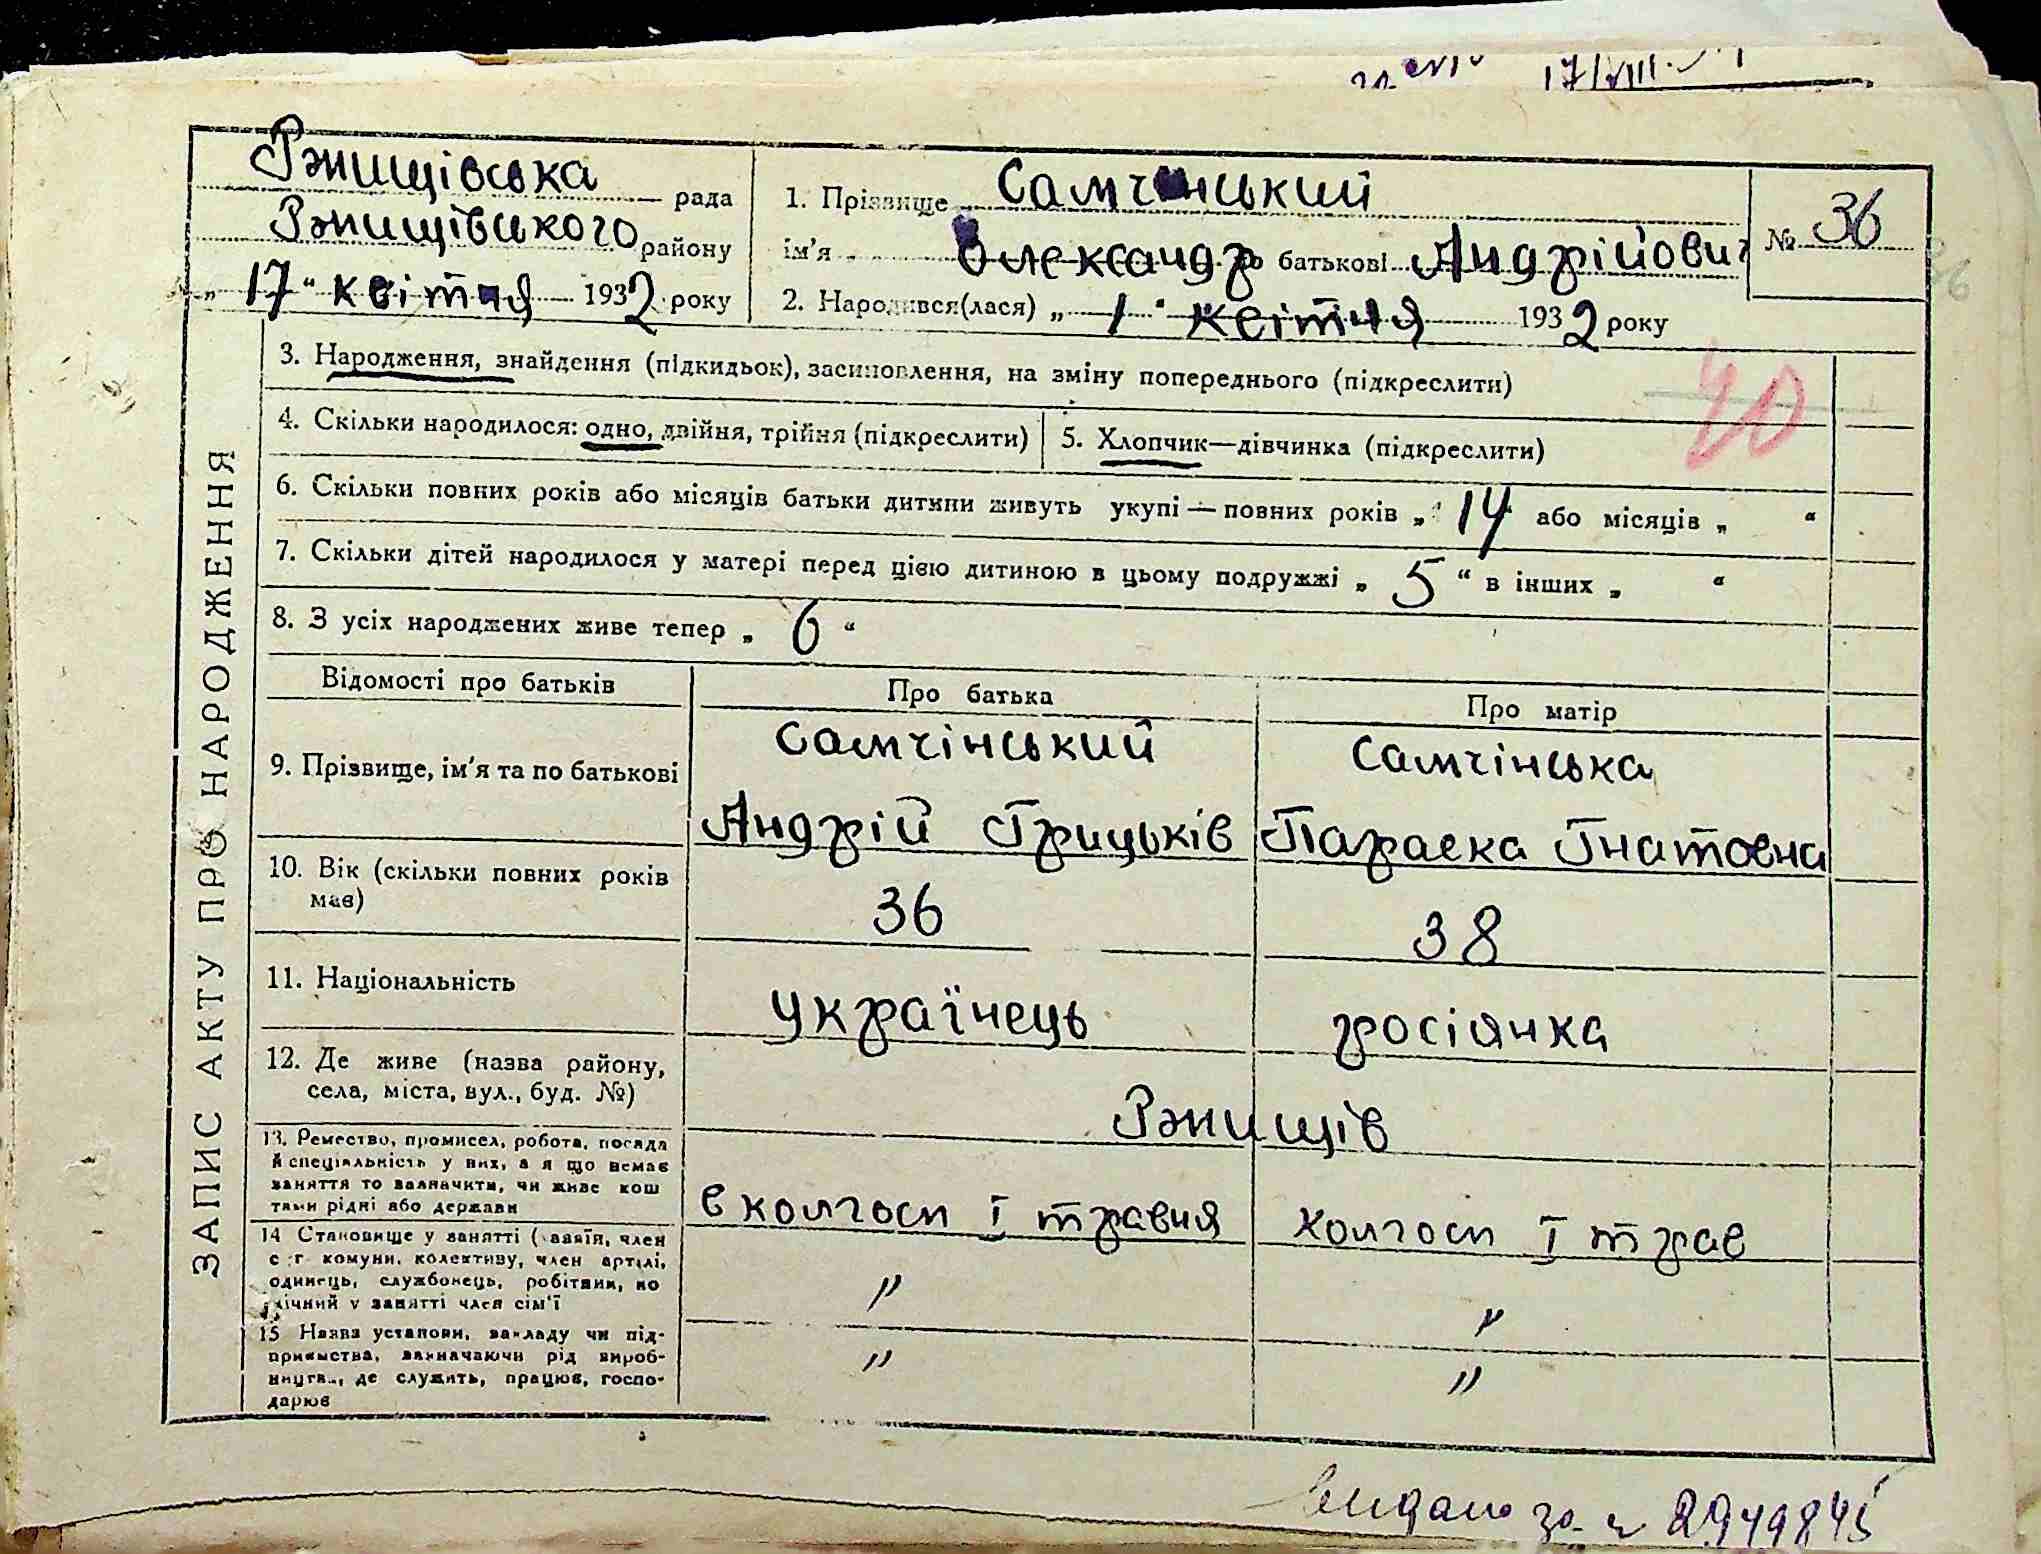 17/VIII.
Ржищівська рада
Ржищівського району
„ 17 “ квітня 1932 року
1. Прізвище Самчінський
ім'я Олександр по батькові Андрійович
2. Народився(лася) „ 1 “ квітня 1932 року
№ 36
36
ЗАПИС АКТУ ПРО НАРОДЖЕННЯ
3. Народження, знайдення (підкидьок), засиновлення, на зміну попереднього (підкреслити)
20
4. Скільки народилося: одно, двійня, трійня (підкреслити)
5. Хлопчик—дівчинка (підкреслити)
6. Скільки повних років або місяців батьки дитини живуть укупі — повних років „ 14 “ або місяців „ “
7. Скільки дітей народилося у матері перед цією дитиною в цьому подружжі „ 5 “ в інших „ “
8. З усіх народжених живе тепер „ 6 “
Відомості про батьків
Про батька
Про матір
9. Прізвище, ім'я та по батькові
Самчінський
Андрій Грицьків
Самчінська
Параска Гнатовна
10. Вік (скільки повних років
має)
36
38
11. Національність
українець
росіянка
12. Де живе (назва району,
села, міста, вул., буд. №)
Ржищів
13. Ремество, промисел, робота, посада
й спеціяльність у них, а я що немає
заняття то зазначити, чи живе кош
тами рідні або держави
в колгосп І травня
колгосп І трав
14 Становище у занятті (хазяїн, член
с г комуни, колективу, член артілі,
одинець, службовець, робітник, по
мічний у занятті член сім'ї
"
"
15 Назва установи, закладу чи під-
приємства, зазначаючи рід вироб-
ництва, де служить, працює, госпо-
дарює
"
"
видано за № 2949845